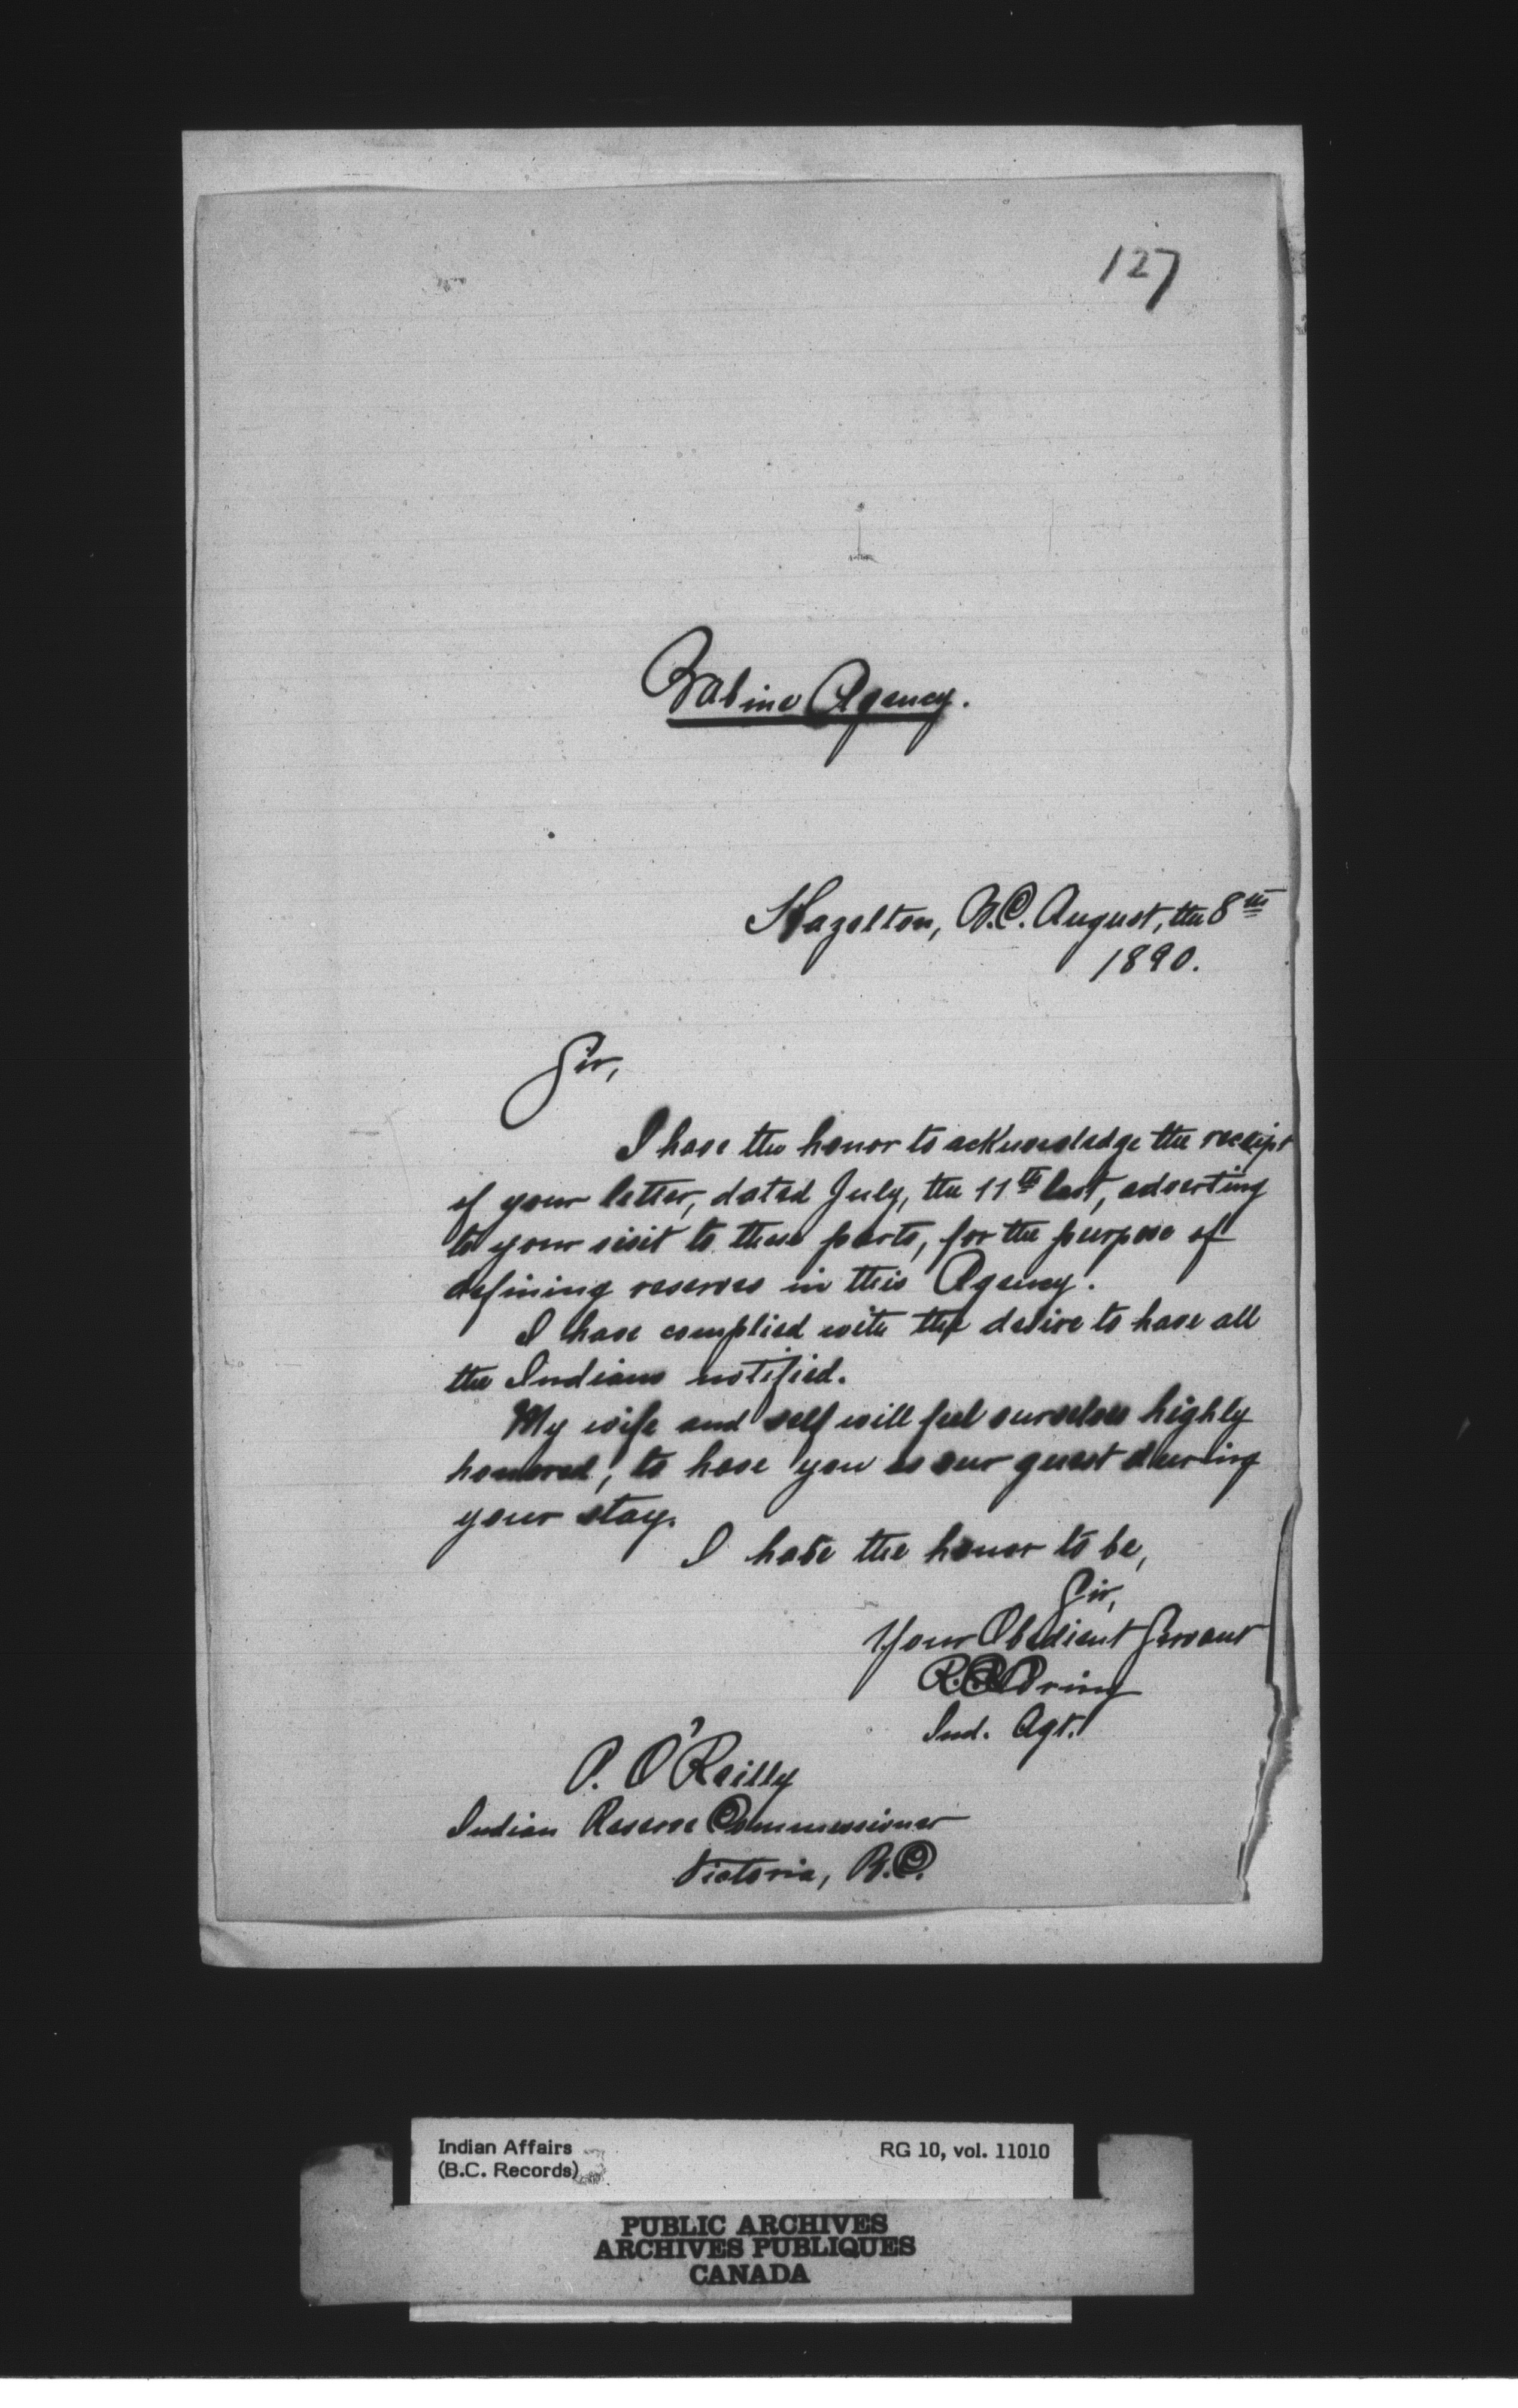 127
Babine Agency.
Hazelton, B.C. August, the 8th
1890.
Sir,
I have the honor to acknowledge the receipt
of your letter, dated July, the 11th last, adverting
to your visit to these parts, for the purpose of
defining reserves in this Agency.
I have complied with the desire to have all
the Indians notified.
My wife and self will feel ourselves highly
honored, to have you as our guest during
your stay.
I have the honor to be,
Sir,
Your Obedient Servant
R.E. Loring
Ind. Agt.
P. O'Reilly
Indian Reserve Commissioner
Victoria, B.C.
Indian Affairs
(B.C. Records)
RG 10, vol. 11010
PUBLIC ARCHIVES
ARCHIVES PUBLIQUES
CANADA